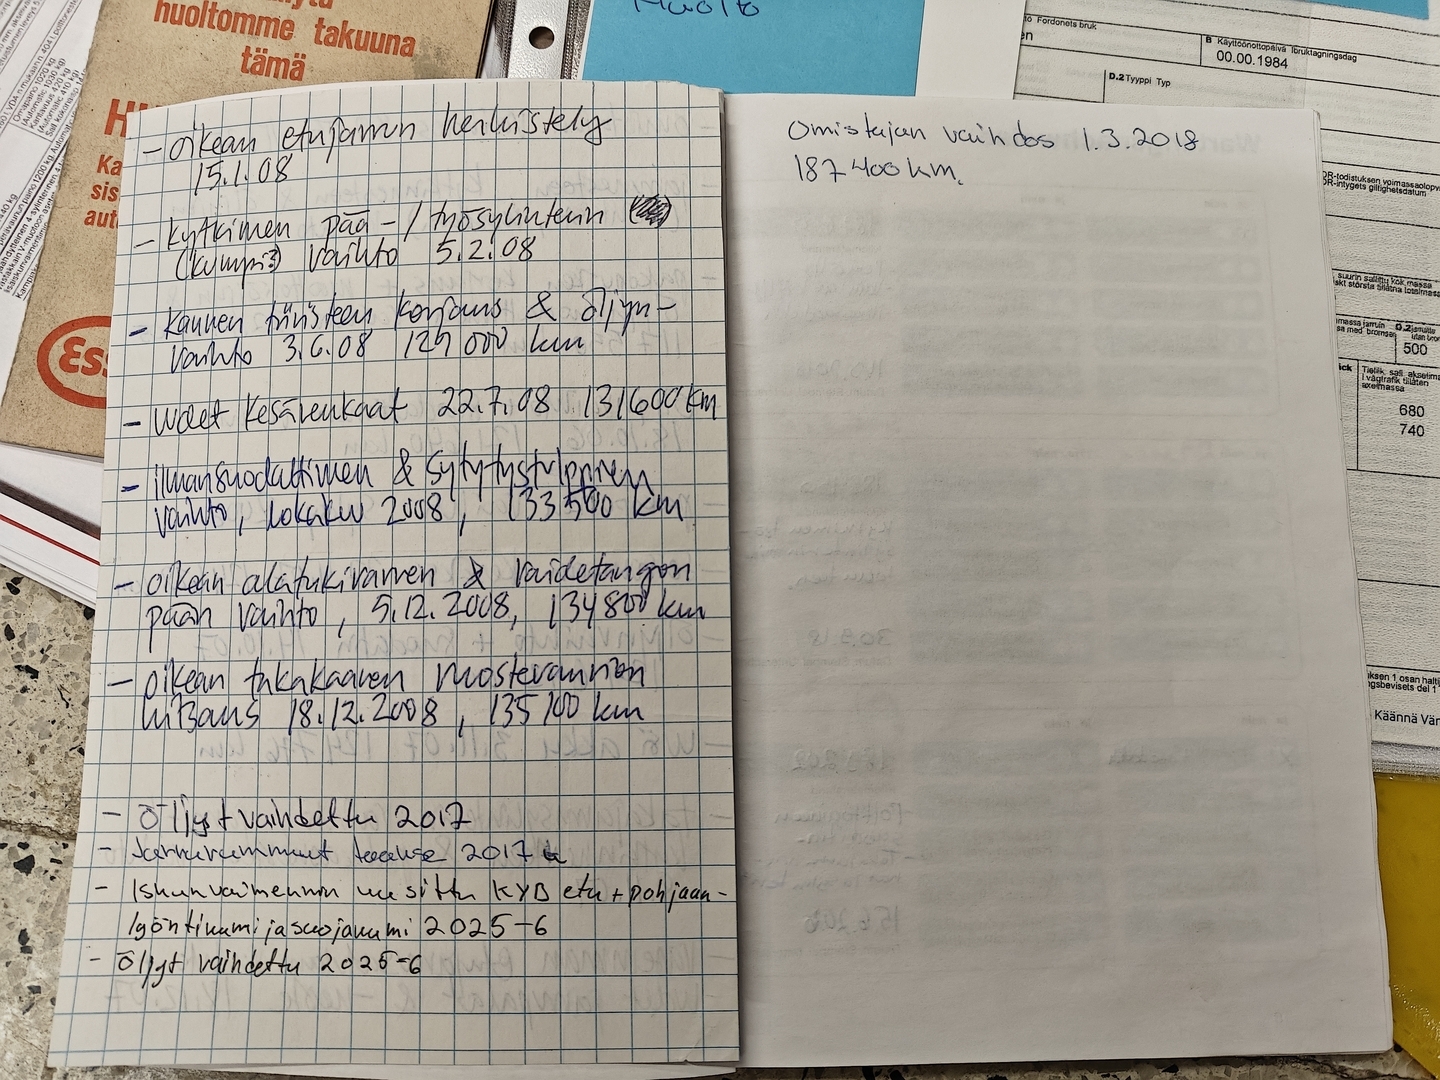 huoltomme takuuna
tämä
Ka
sis
aut
Ess
- oikean etujarrun herkistely
15.1.08
- kytkimen pää-/työsylinterin
(kumpi?) vaihto 5.2.08
- kannen tiivisteen korjaus & öljyn-
vaihto 3.6.08 129 000 km
- uudet kesärenkaat 22.7.08 131600 km
- ilmansuodattimen & sytytystulppien
vaihto, lokakuu 2008, 133 500 km
- oikean alatukivarren & raidetangon
pään vaihto, 5.12.2008, 134 800 km
- oikean takakaaren ruostevaurion
hitsaus 18.12.2008, 135 100 km
- öljyt vaihdettu 2017
- Jarrurummut taakse 2017
- Iskunvaimennin uusittu KYB etu + pohjaan-
lyöntikumi ja suojakumi 2025-6
- öljyt vaihdettu 2025-6
Omistajan vaihdos 1.3.2018
187 400 km.
Huolto
Fordonets bruk
B Käyttöönottopäivä Ibruktagningsdag
00.00.1984
D.2 Tyyppi Typ
500
680
740
Käännä Vän